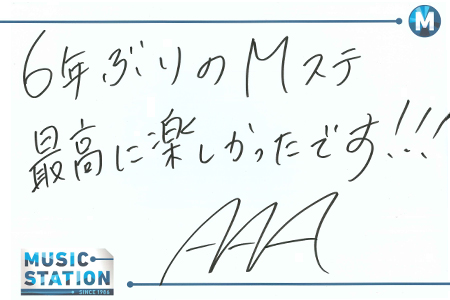 M
6年ぶりのMステ
最高に楽しかったです!!!
AAA
MUSIC
STATION
SINCE 1986